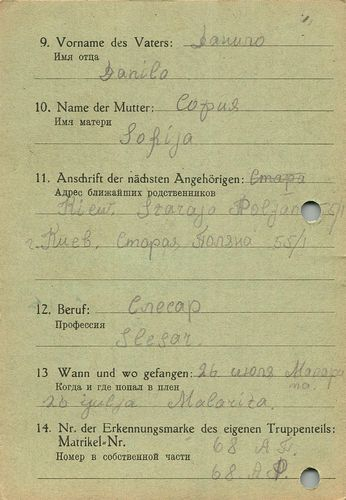 9. Vorname des Vaters: Данило
Имя отца
Danilo
10. Name der Mutter: София
Имя матери
Sofija
11. Anschrift der nächsten Angehörigen: Стара
Адрес ближайших родственников
Kiew. Staraja Poljana 55/1
г. Киев, Старая Поляна 55/1
12. Beruf: Слесар
Профессия
Slesar.
13 Wann und wo gefangen: 26 июля
Когда и где попал в плен
26 julja Malarita.
14. Nr. der Erkennungsmarke des eigenen Truppenteils:
Matrikel-Nr.
68 А.П.
Номер в собственной части
68 A.P.